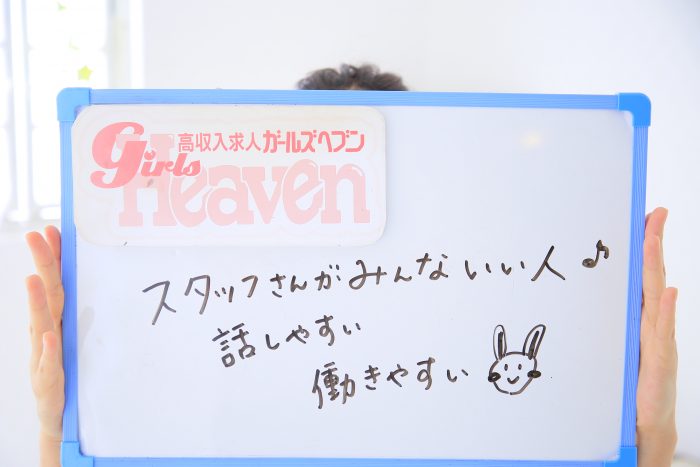 高収入求人ガールズヘブン
Girls
Heaven
スタッフさんがみんないい人♪
話しやすい
働きやすい